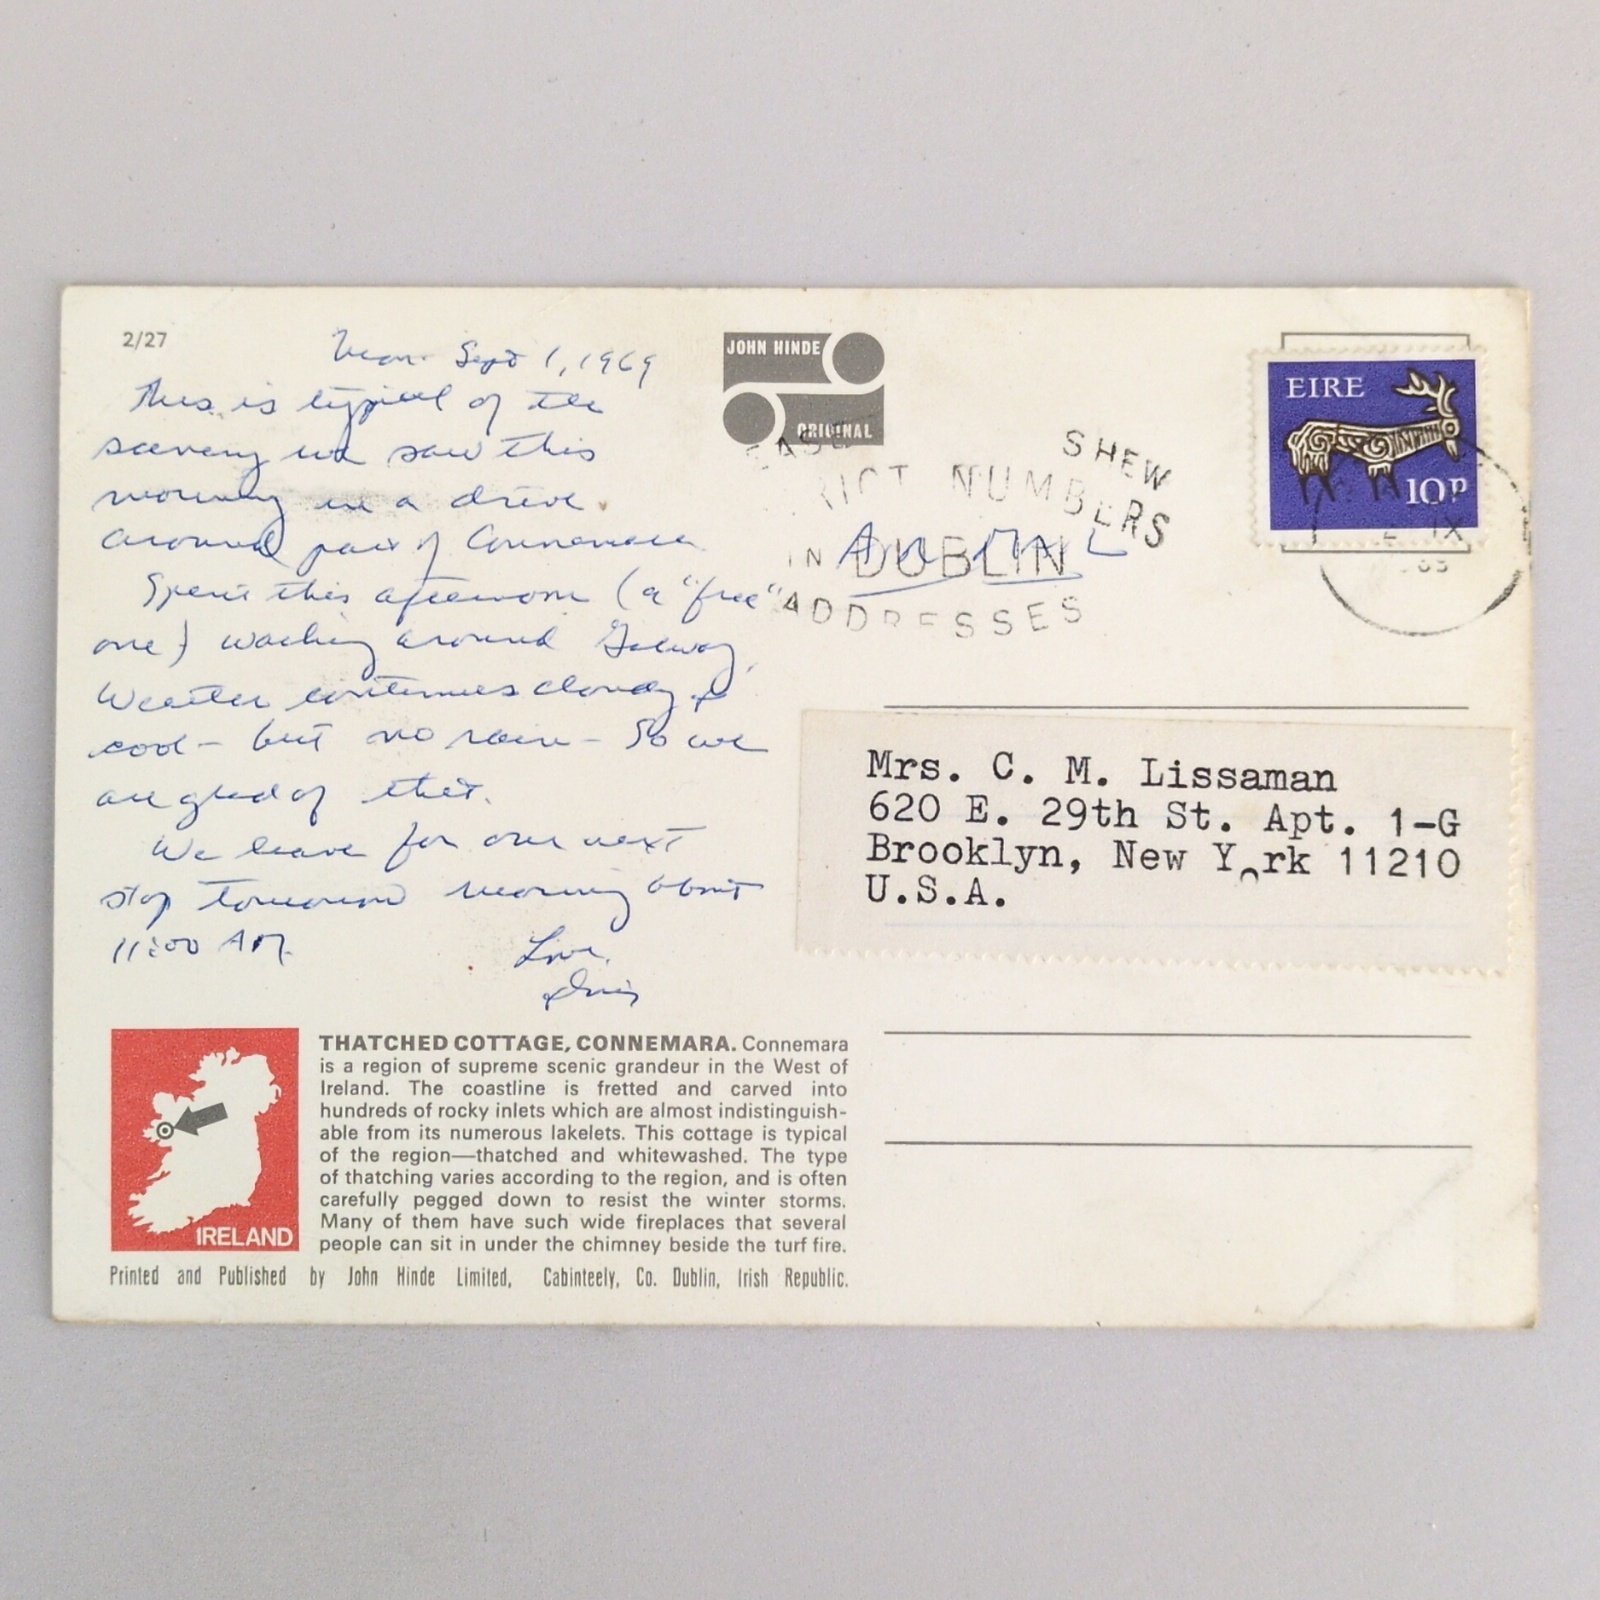 2/27
Mon. Sept 1, 1969
This is typical of the
scenery we saw this
morning in a drive
around part of Connemara
Spent this afternoon (a "free"
one) walking around Galway.
Weather continues cloudy &
cool - but no rain - So we
are glad of that.
We leave for our next
stop tomorrow morning about
11:00 AM.
Love,
JOHN HINDE
ORIGINAL
SHEW
NUMBERS
IN DUBLIN
ADDRESSES
EIRE
10p
Mrs. C. M. Lissaman
620 E. 29th St. Apt. 1-G
Brooklyn, New Y rk 11210
U.S.A.
IRELAND
THATCHED COTTAGE, CONNEMARA. Connemara
is a region of supreme scenic grandeur in the West of
Ireland. The coastline is fretted and carved into
hundreds of rocky inlets which are almost indistinguish-
able from its numerous lakelets. This cottage is typical
of the region—thatched and whitewashed. The type
of thatching varies according to the region, and is often
carefully pegged down to resist the winter storms.
Many of them have such wide fireplaces that several
people can sit in under the chimney beside the turf fire.
Printed and Published by John Hinde Limited, Cabinteely, Co. Dublin, Irish Republic.